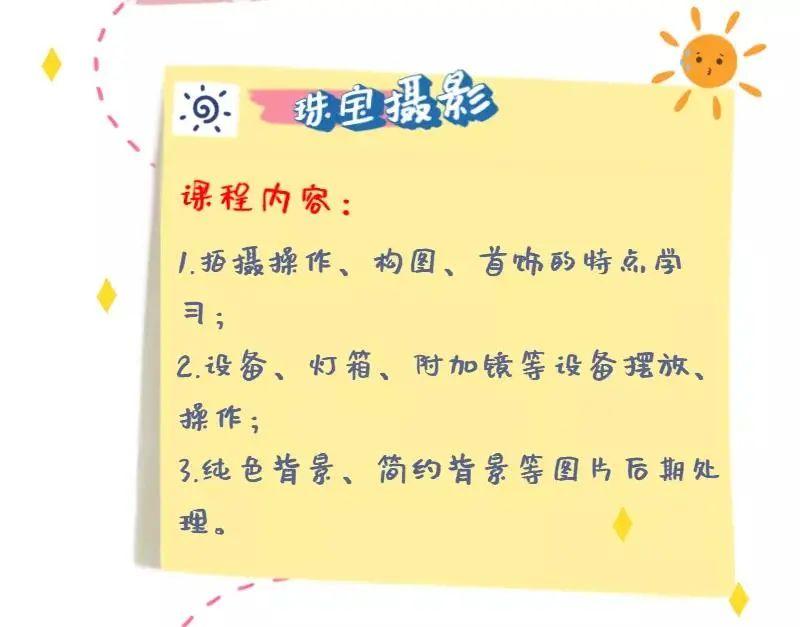 珠宝摄影
课程内容：
1.拍摄操作、构图、首饰的特点学
习；
2.设备、灯箱、附加镜等设备摆放、
操作；
3.纯色背景、简约背景等图片后期处
理。